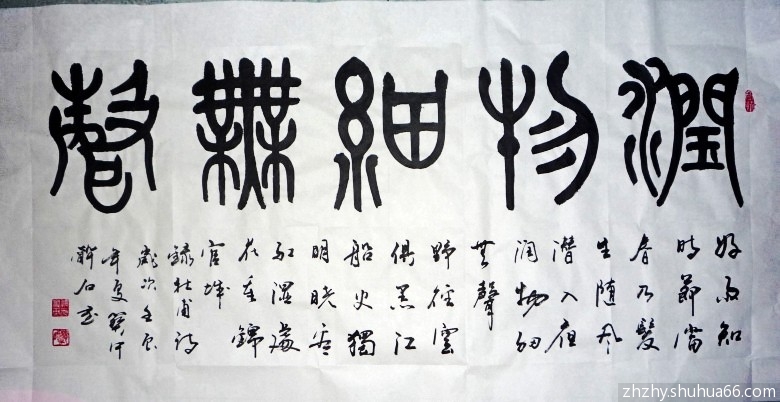 潤物細無聲
好雨知
時節當
春乃發
生随风
潛入夜
润物细
無聲
野徑雲
俱黑江
船火獨
明曉看
红濕處
花重錦
官城
錄杜甫詩
歲次壬辰
年夏
石書
zhzhy.shuhua66.com